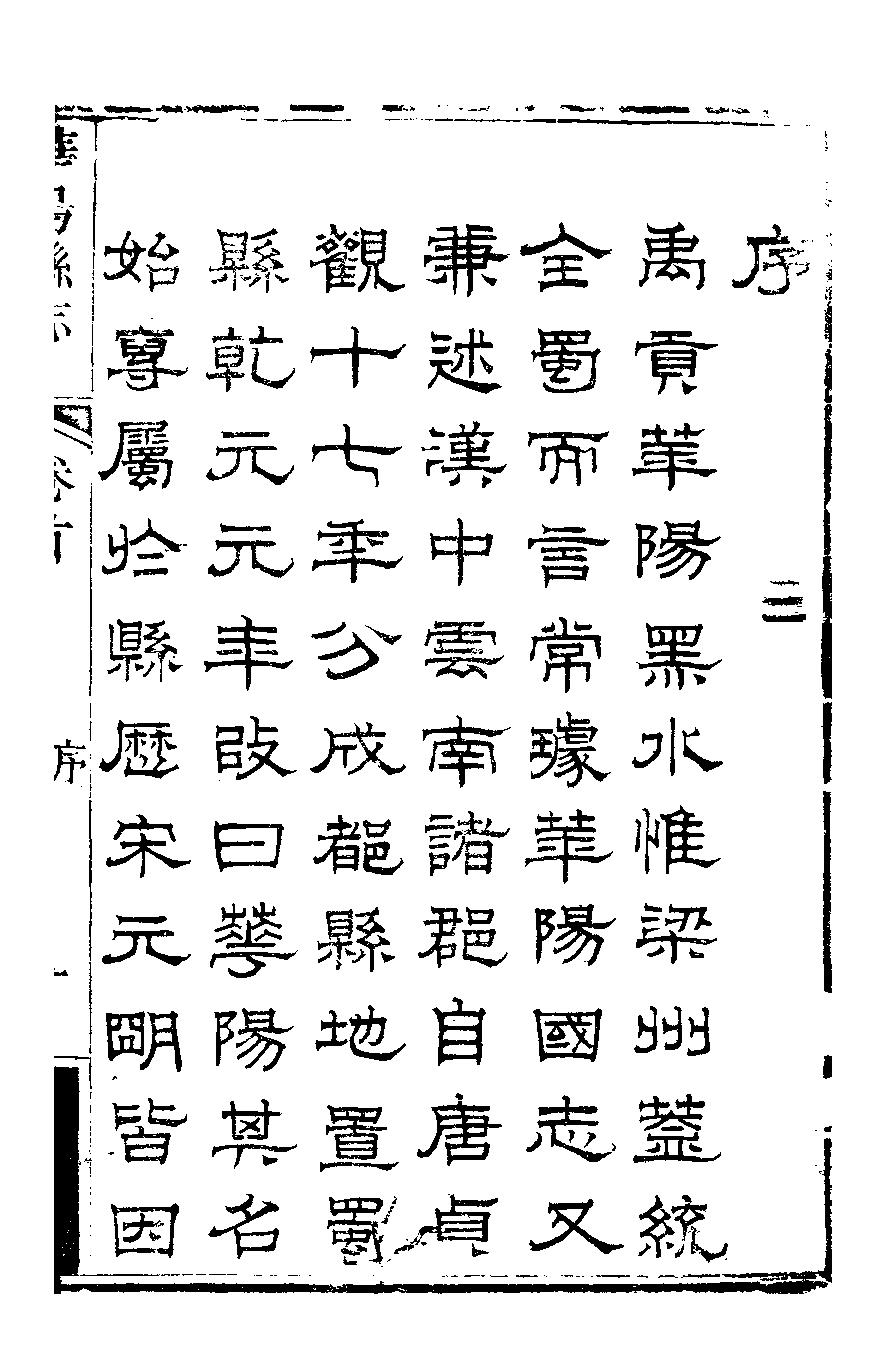 序
二
禹貢華陽黑水惟梁州葢統
全蜀而言常璩華陽國志又
兼述漢中雲南諸郡自唐貞
觀十七年分成都縣地置蜀
縣乾元元年改曰華陽其名
始專屬於縣歷宋元明皆因
華陽縣志
卷首
序
一